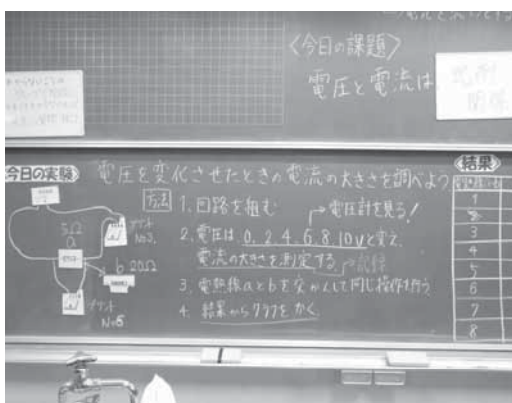 〈今日の課題〉
電圧と電流は、比例
関係
今日の実験
電圧を変化させたときの電流の大きさを調べよう
方法
1. 回路を組む
→電圧計を見る!
2. 電圧は、0, 2, 4, 6, 8, 10Vと変え、
電流の大きさを測定する。→記録
3. 電熱線aとbを交かんして同じ操作を行う。
4. 結果からグラフをかく。
5Ω
a
b 20Ω
結果
1
2
3
4
5
6
7
8